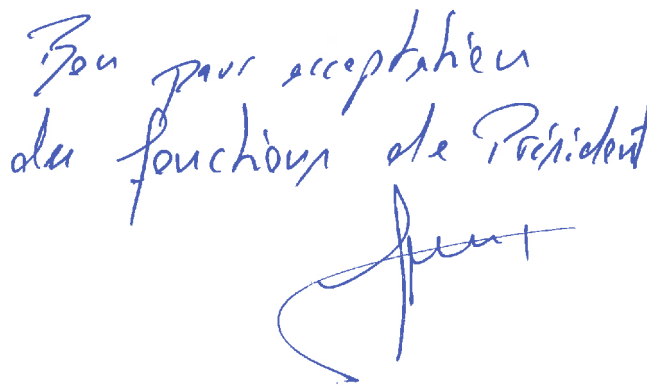 Bon pour acceptation
des fonctions de Président